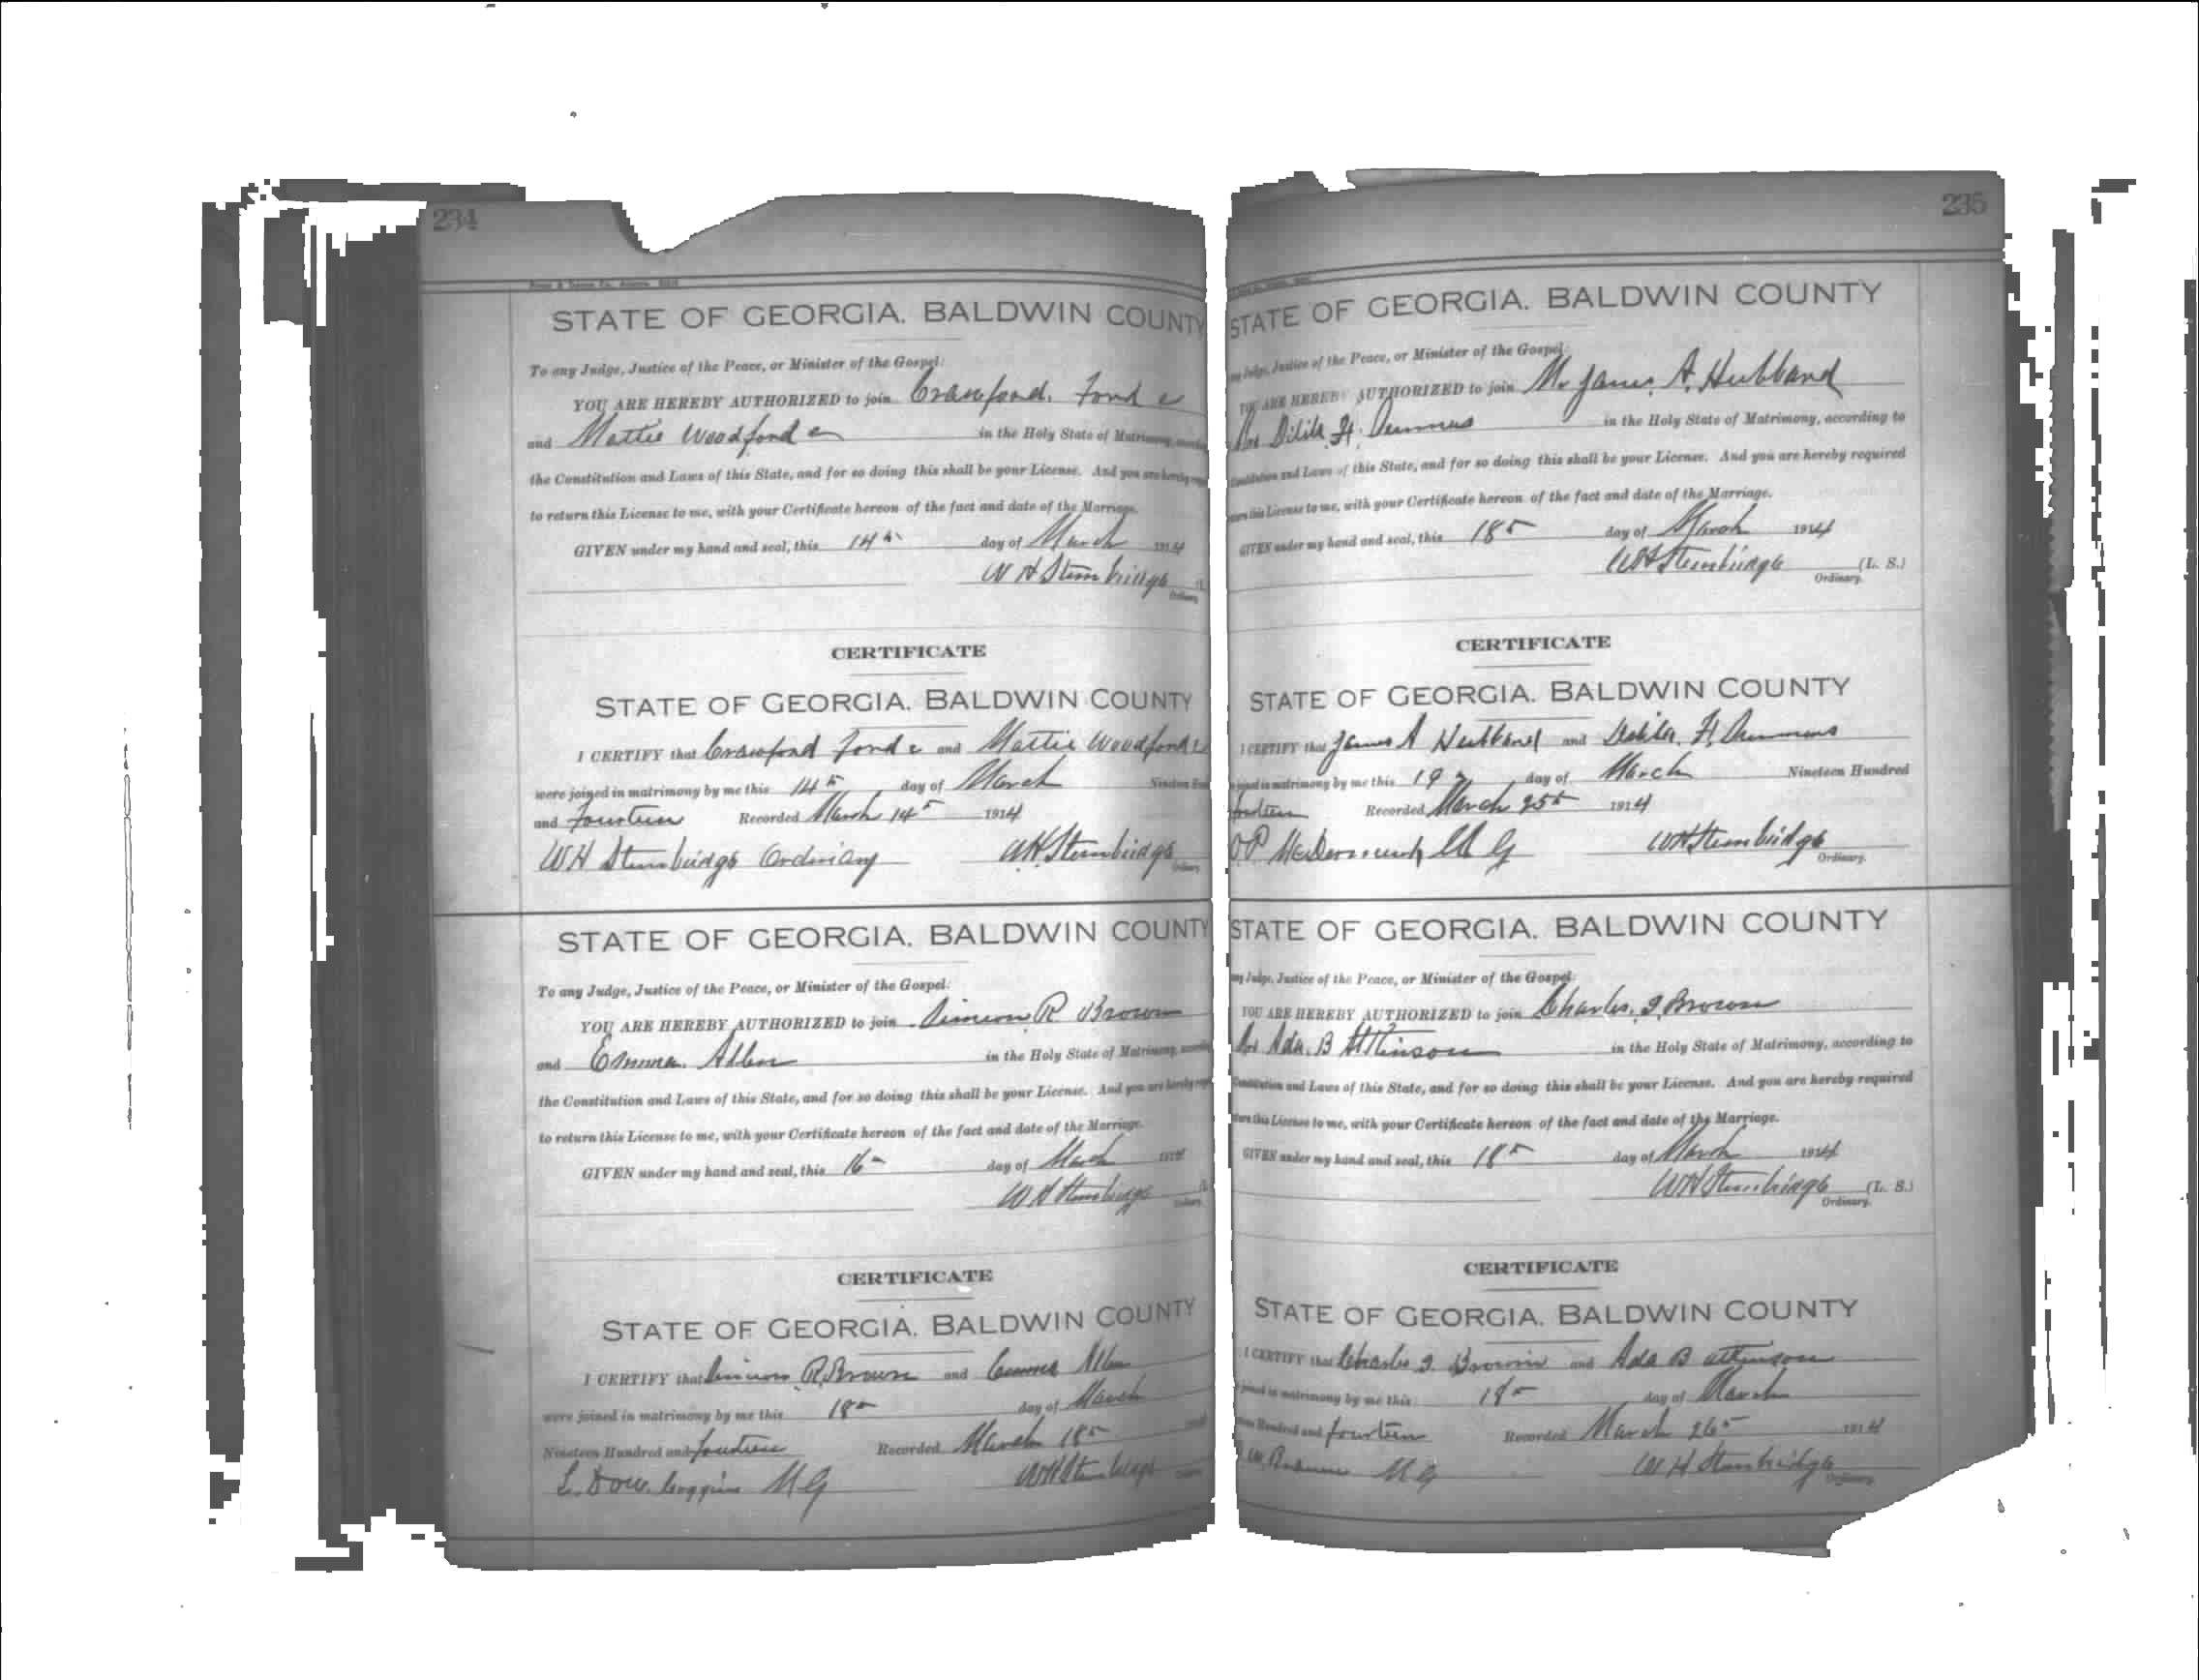 234
STATE OF GEORGIA. BALDWIN COUNTY
To any Judge, Justice of the Peace, or Minister of the Gospel:
YOU ARE HEREBY AUTHORIZED to join Crawford Ford c
and Mattie Woodford c in the Holy State of Matrimony,
the Constitution and Laws of this State, and for so doing this shall be your License. And you are hereby
to return this License to me, with your Certificate hereon of the fact and date of the Marriage.
GIVEN under my hand and seal, this 14th day of March 1914
W H Stembridge
Ordinary
CERTIFICATE
STATE OF GEORGIA. BALDWIN COUNTY
I CERTIFY that Crawford Ford c and Mattie Woodford c
were joined in matrimony by me this 14th day of March Nineteen
and Fourteen Recorded March 14th 1914
WH Stembridge Ordinary WH Stembridge
Ordinary
STATE OF GEORGIA. BALDWIN COUNTY
To any Judge, Justice of the Peace, or Minister of the Gospel:
YOU ARE HEREBY AUTHORIZED to join Simeon R Brown
and Emma Allen in the Holy State of Matrimony,
the Constitution and Laws of this State, and for so doing this shall be your License. And you are hereby
to return this License to me, with your Certificate hereon of the fact and date of the Marriage.
GIVEN under my hand and seal, this 16 day of March 1914
W H Stembridge
CERTIFICATE
STATE OF GEORGIA. BALDWIN COUNTY
I CERTIFY that Simeon R Brown and Emma Allen
were joined in matrimony by me this 18 day of March
Nineteen Hundred and fourteen Recorded March 18th
L. Dow M G WH Stembridge
235
STATE OF GEORGIA. BALDWIN COUNTY
Judge, Justice of the Peace, or Minister of the Gospel:
YOU ARE HEREBY AUTHORIZED to join Mr James A. Hubbard
H. in the Holy State of Matrimony, according to
Constitution and Laws of this State, and for so doing this shall be your License. And you are hereby required
this License to me, with your Certificate hereon of the fact and date of the Marriage.
GIVEN under my hand and seal, this 18th day of March 1914
WH Stembridge (L. S.)
Ordinary.
CERTIFICATE
STATE OF GEORGIA. BALDWIN COUNTY
I CERTIFY that James A Hubbard and H.
in matrimony by me this 19 day of March Nineteen Hundred
fourteen Recorded March 25th 1914
M G WH Stembridge
Ordinary.
STATE OF GEORGIA. BALDWIN COUNTY
Judge, Justice of the Peace, or Minister of the Gospel:
YOU ARE HEREBY AUTHORIZED to join Charles Brown
Ada B Attkinson in the Holy State of Matrimony, according to
Constitution and Laws of this State, and for so doing this shall be your License. And you are hereby required
this License to me, with your Certificate hereon of the fact and date of the Marriage.
GIVEN under my hand and seal, this 18th day of March 1914
WH Stembridge (L. S.)
Ordinary.
CERTIFICATE
STATE OF GEORGIA. BALDWIN COUNTY
I CERTIFY that Charles Brown and Ada B Attkinson
in matrimony by me this 18 day of March
Hundred and fourteen Recorded March 26th 1914
M G W H Stembridge
Ordinary